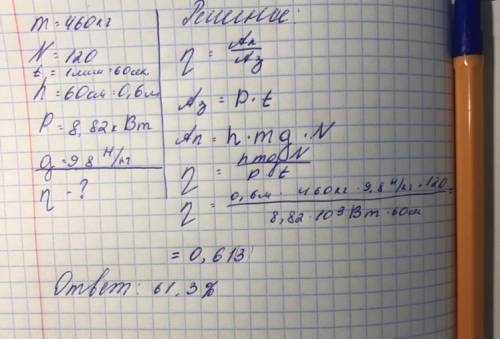 m = 460кг
N = 120
t₁ = 1мин = 60сек
h = 60см = 0,6м
P = 8,82кВт
g = 9,8 Н/кг
η - ?
Решение:
η = Ап/Аз
Аз = P · t
Ап = h · mg · N
η = hmgN/P·t
η = 0,6м · 460кг · 9,8 Н/кг · 120 / 8,82 · 10³ Вт · 60см
= 0,613
Ответ: 61,3%